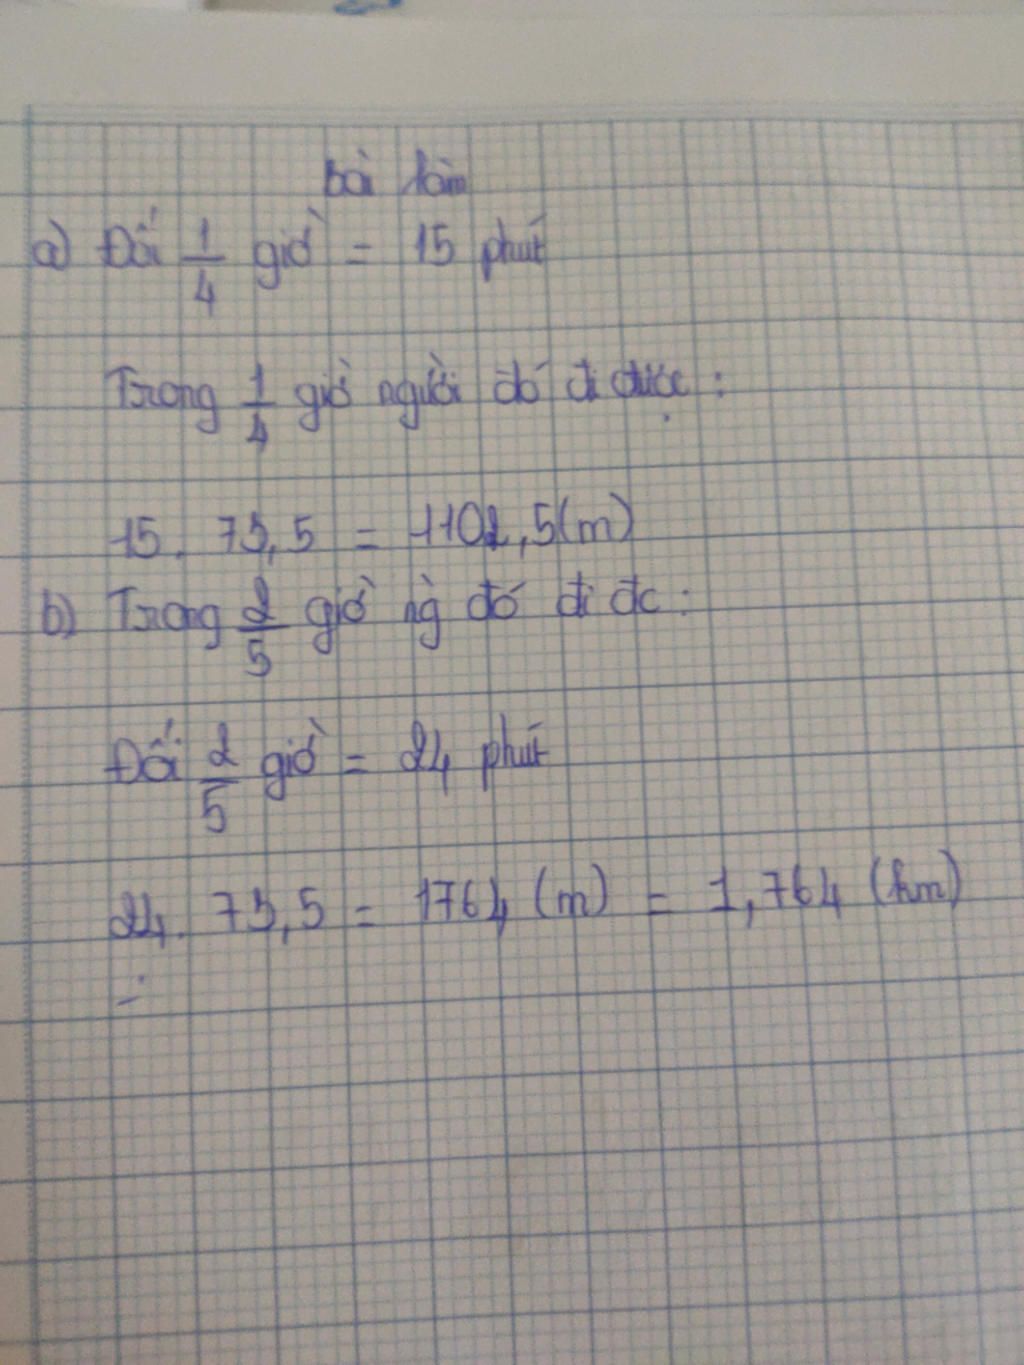 bài làm
a) Đổi 1/4 giờ = 15 phút
Trong 1/4 giờ người đó đi được :
15. 73,5 = 1102,5(m)
b) Trong 2/5 giờ ng̀ đó đi đc :
Đổi 2/5 giờ = 24 phút
24. 73,5 = 1764 (m) = 1,764 (km)